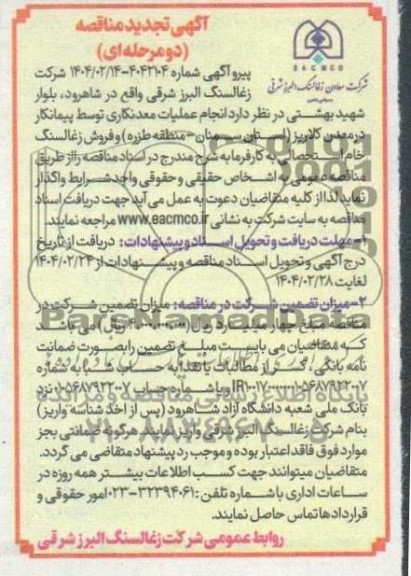 آگهی تجدید مناقصه
(دو مرحله ای)
EACMCO
شرکت معادن زغالسنگ البرز شرقی
پیرو آگهی شماره ۴۰۴۲۱۰۴-۱۴۰۴/۰۲/۱۴ شرکت
زغالسنگ البرز شرقی واقع در شاهرود، بلوار
شهید بهشتی در نظر دارد انجام عملیات معدنکاری توسط پیمانکار
در معدن کلاریز (استان سمنان-منطقه طزره) و فروش زغالسنگ
خام استحصالی به کارفرما به شرح مندرج در اسناد مناقصه را از طریق
مناقصه عمومی به اشخاص حقیقی و حقوقی واجد شرایط واگذار
نماید لذا از کلیه متقاضیان دعوت به عمل می آید جهت دریافت اسناد
مناقصه به سایت شرکت به نشانی www.eacmco.ir مراجعه نمایند.
۱-مهلت دریافت و تحویل اسناد و پیشنهادات: دریافت از تاریخ
درج آگهی و تحویل اسناد مناقصه و پیشنهادات از ۱۴۰۴/۰۲/۲۴
لغایت ۱۴۰۴/۰۲/۲۸
۲-میزان تضمین شرکت در مناقصه: میزان تضمین شرکت در
مناقصه مبلغ چهار میلیارد ریال (۴۰۰۰۰۰۰۰۰۰ ریال) می باشد
که متقاضیان می بایست مبلغ تضمین را بصورت ضمانت
نامه بانکی، کسر از مطالبات یا نقدا به حساب شبا به شماره
و یا شماره حساب ۰۱۰۵۶۸۷۹۲۲۰۰۷ نزد
بانک ملی شعبه دانشگاه آزاد شاهرود (پس از اخذ شناسه واریز)
بنام شرکت زغالسنگ البرز شرقی واریز نمایند هرگونه ضمانتی بجز
موارد فوق فاقد اعتبار بوده و موجب رد پیشنهاد متقاضی می گردد.
متقاضیان میتوانند جهت کسب اطلاعات بیشتر همه روزه در
ساعات اداری با شماره تلفن: ۳۲۳۹۴۰۶۱-۰۲۳ امور حقوقی و
قراردادها تماس حاصل نمایند.
روابط عمومی شرکت زغالسنگ البرز شرقی
ParsNamadData
پایگاه اطلاع رسانی مناقصه و مزایده